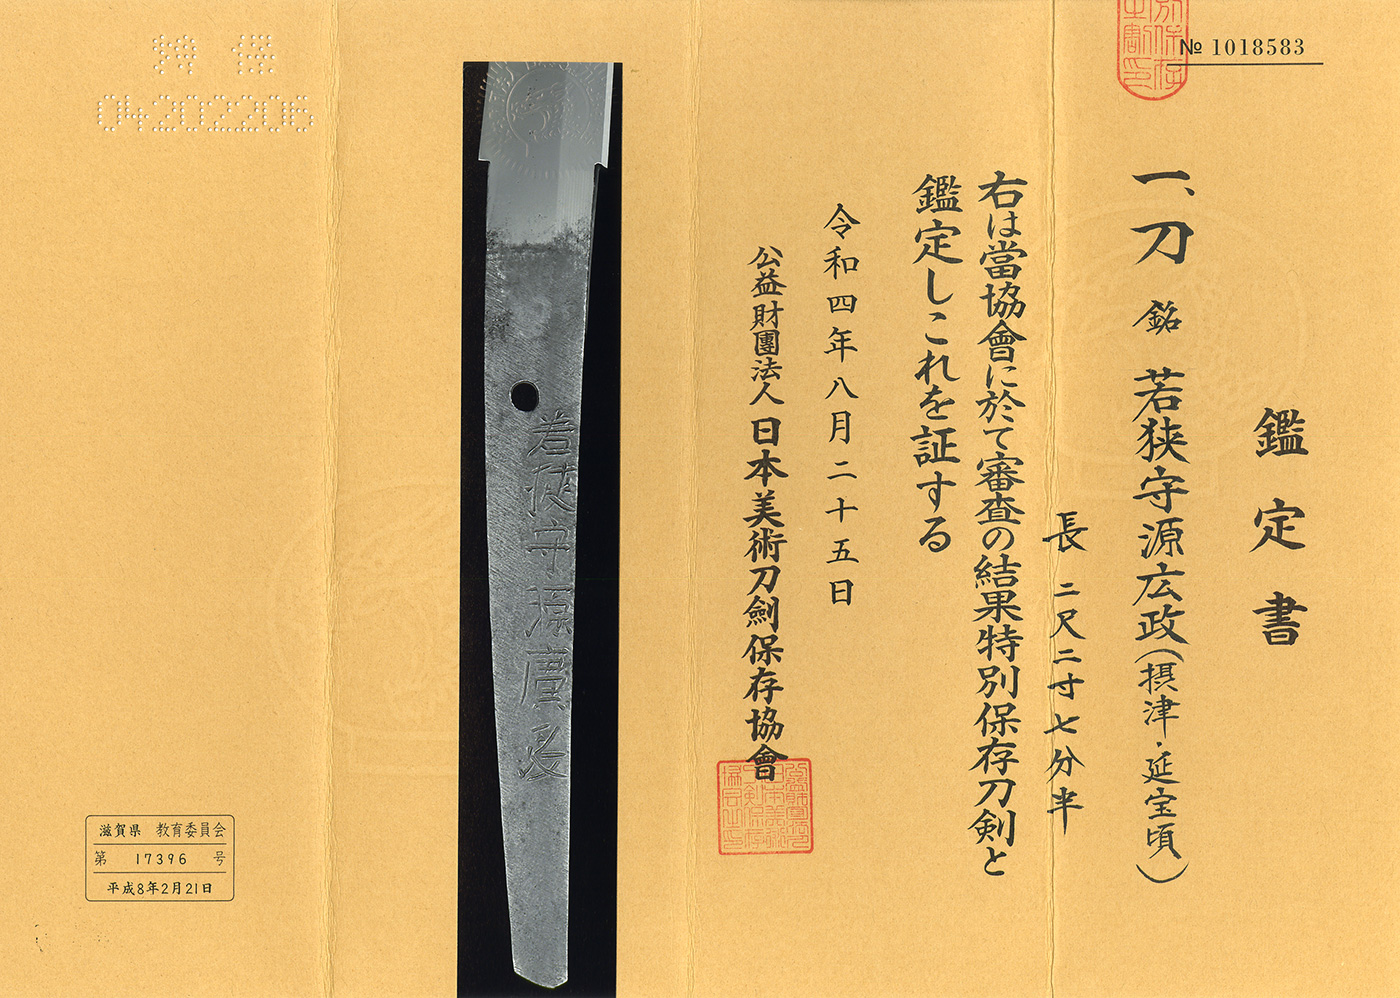 № 1018583
鑑定書
一、刀 銘 若狭守源広政(摂津・延宝頃)
長 二尺二寸七分半
右は當協會に於て審査の結果特別保存刀剣と
鑑定しこれを証する
令和四年八月二十五日
公益財團法人 日本美術刀劍保存協會
若狭守源廣政
04202206
滋賀県 教育委員会
第 17396 号
平成8年2月21日